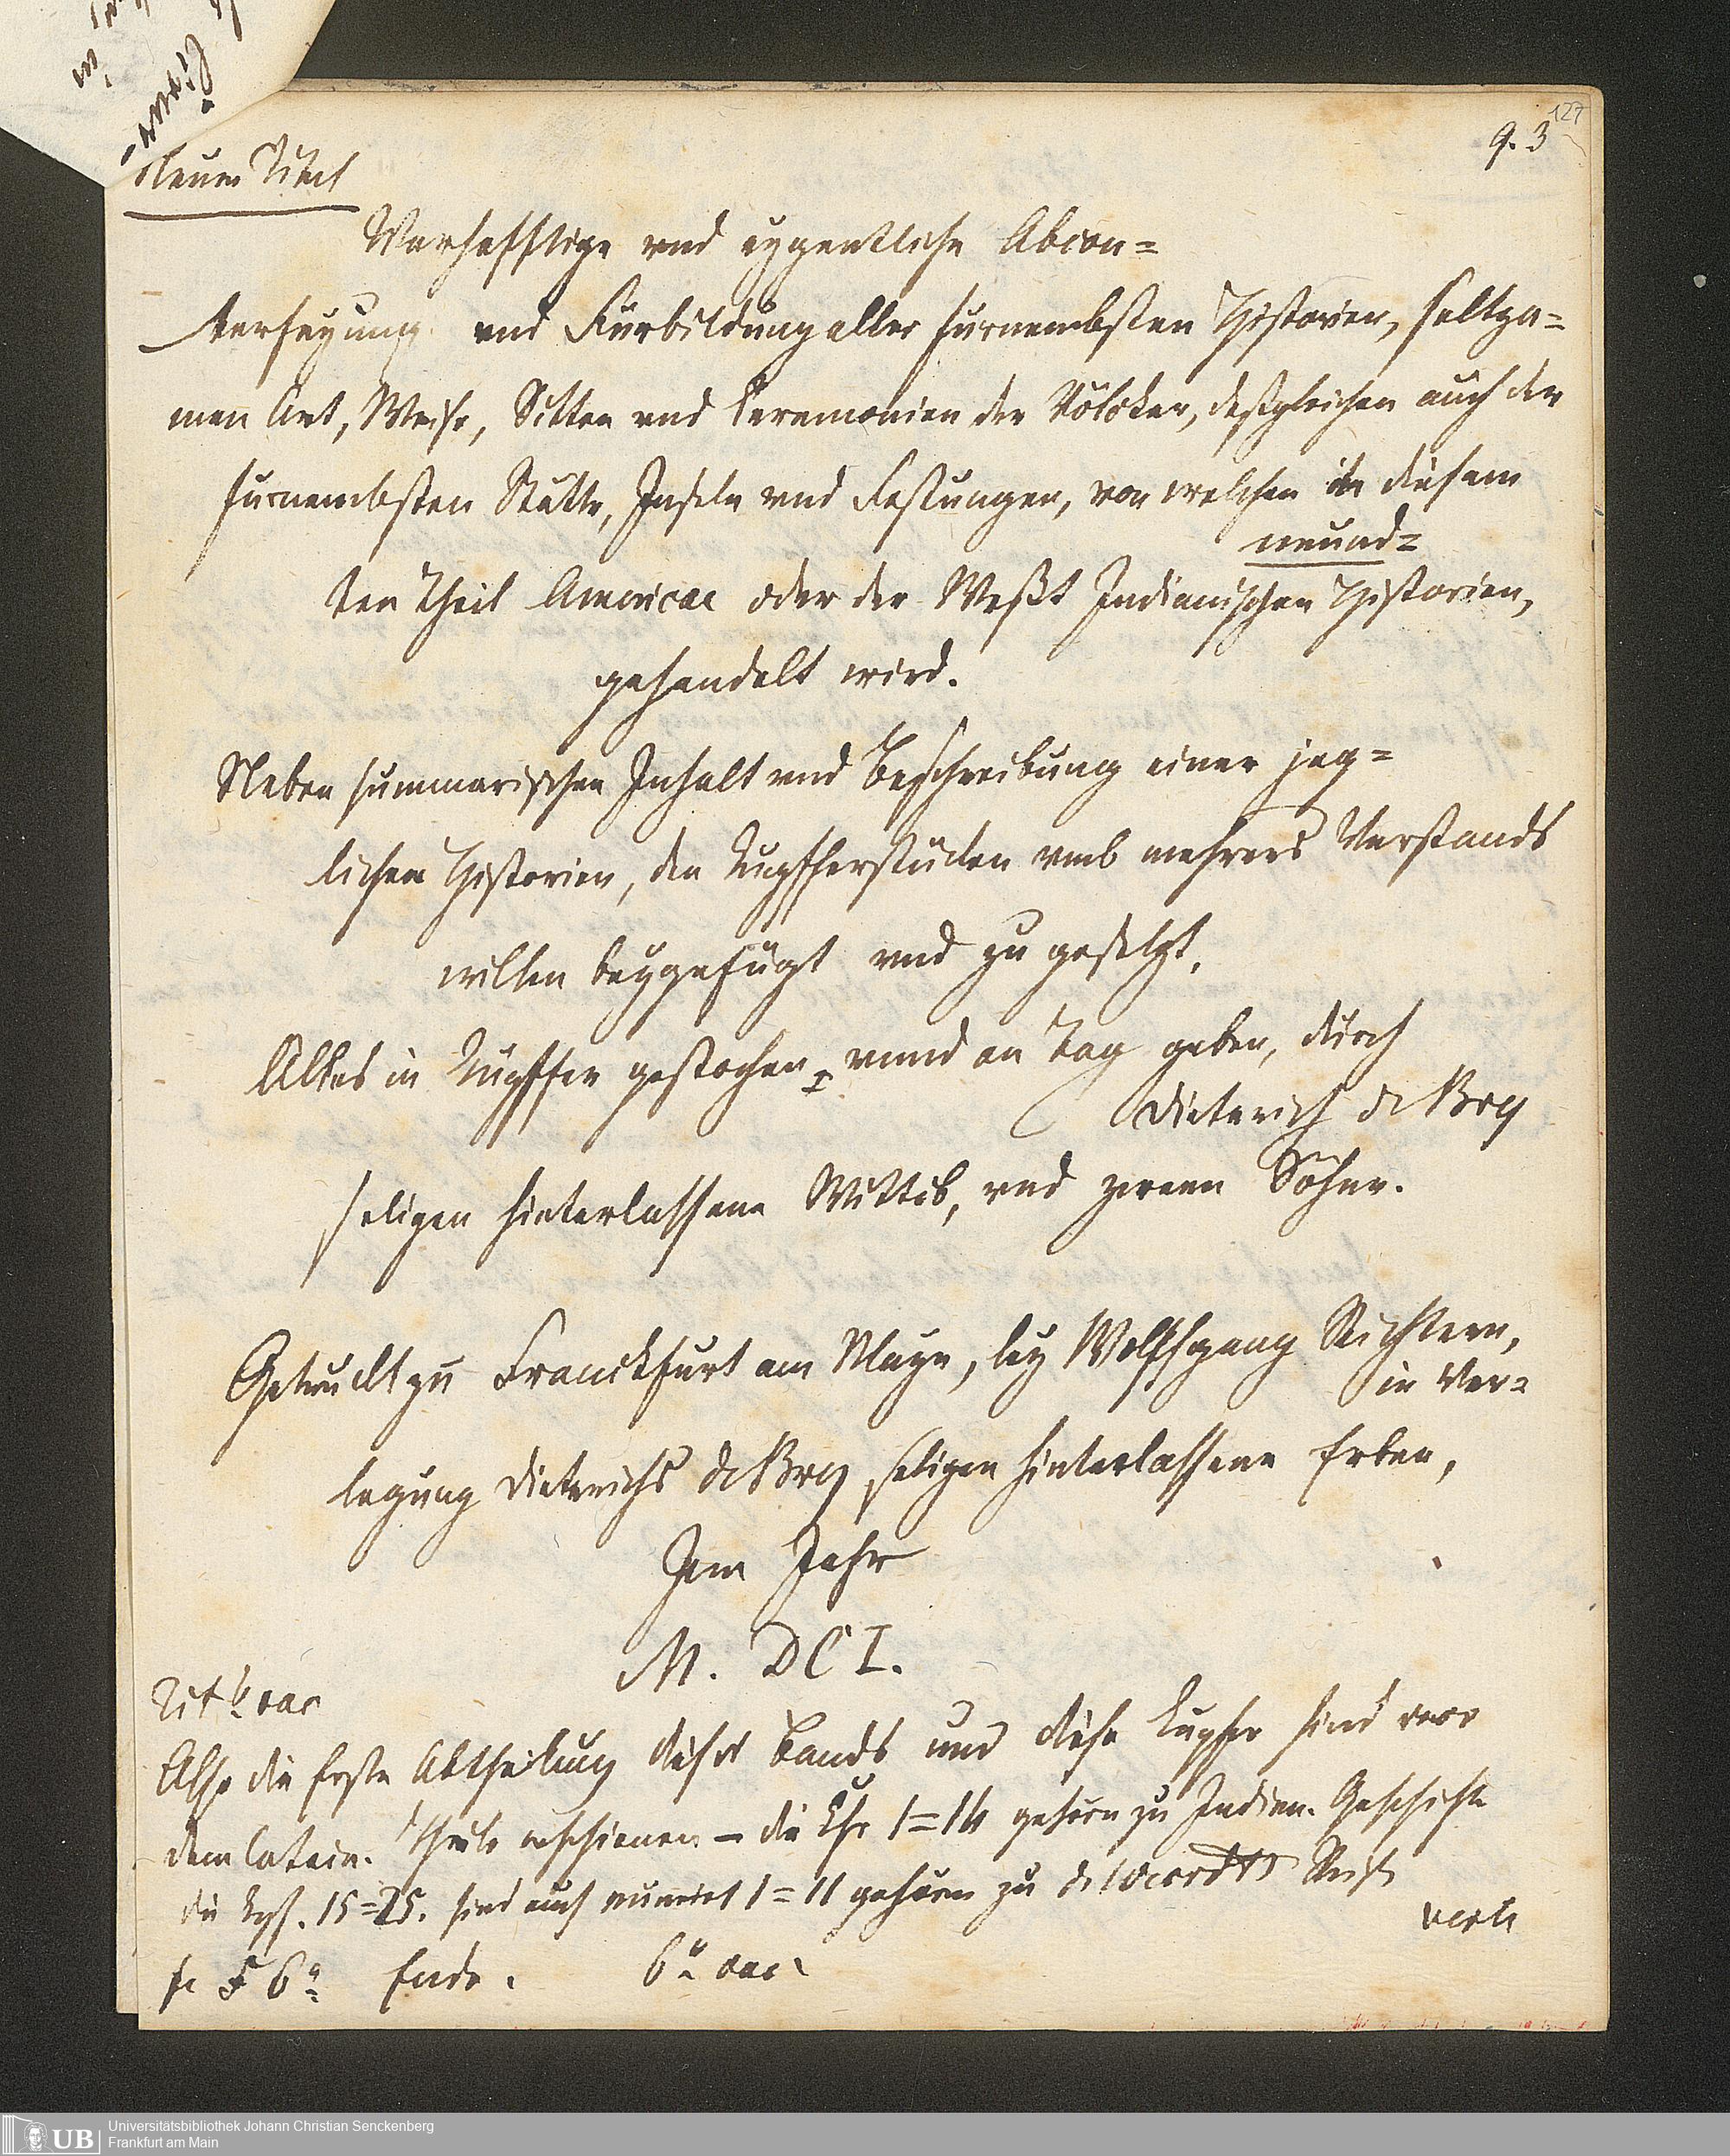 127
9. 3
Neuer Titel
Warhafftige vnd eygentliche Abcon=
terfeyung vnd Fürbildung aller fürnembsten Historien, seltza=
men Art, Weise, Sitten vnd Ceremonien der Völcker, deßgleichen auch der
fürnembsten Stätte, Inseln vnd Festungen, von welchen in diesem
neund=
ten Theil Americae oder der West Indianischen Historien,
gehandelt wird.
Neben summarischen Inhalt vnd Beschreibung einer jeg=
lichen Historien, den Kupfferstücken vmb mehrers Verstands
willen beygefügt vnd zu gesetzt.
Alles in Kupffer gestochen, vnnd an Tag geben, durch
Dieterich de Bry
seligen hinterlassene Wittib, vnd zween Söhne.
Getruckt zu Franckfurt am Mayn, bey Wolffgang Richtern,
in Ver=
legung Dieterichs de Bry seligen hinterlassene Erben,
Im Jahr
M. DCI.
Tit b vac
Also die erste Abtheilung dises Bands und dise Kupfer sind vor
dem latein. Theile erschienen – die Kpfr 1=14 gehörn zu Indien. Geschichte
die Kpf. 15=25. sind auch numirt 1=11 gehören zu de Weerdts Reise
verte
F 6a Ende. 6b vac.
UB
Universitätsbibliothek Johann Christian Senckenberg
Frankfurt am Main